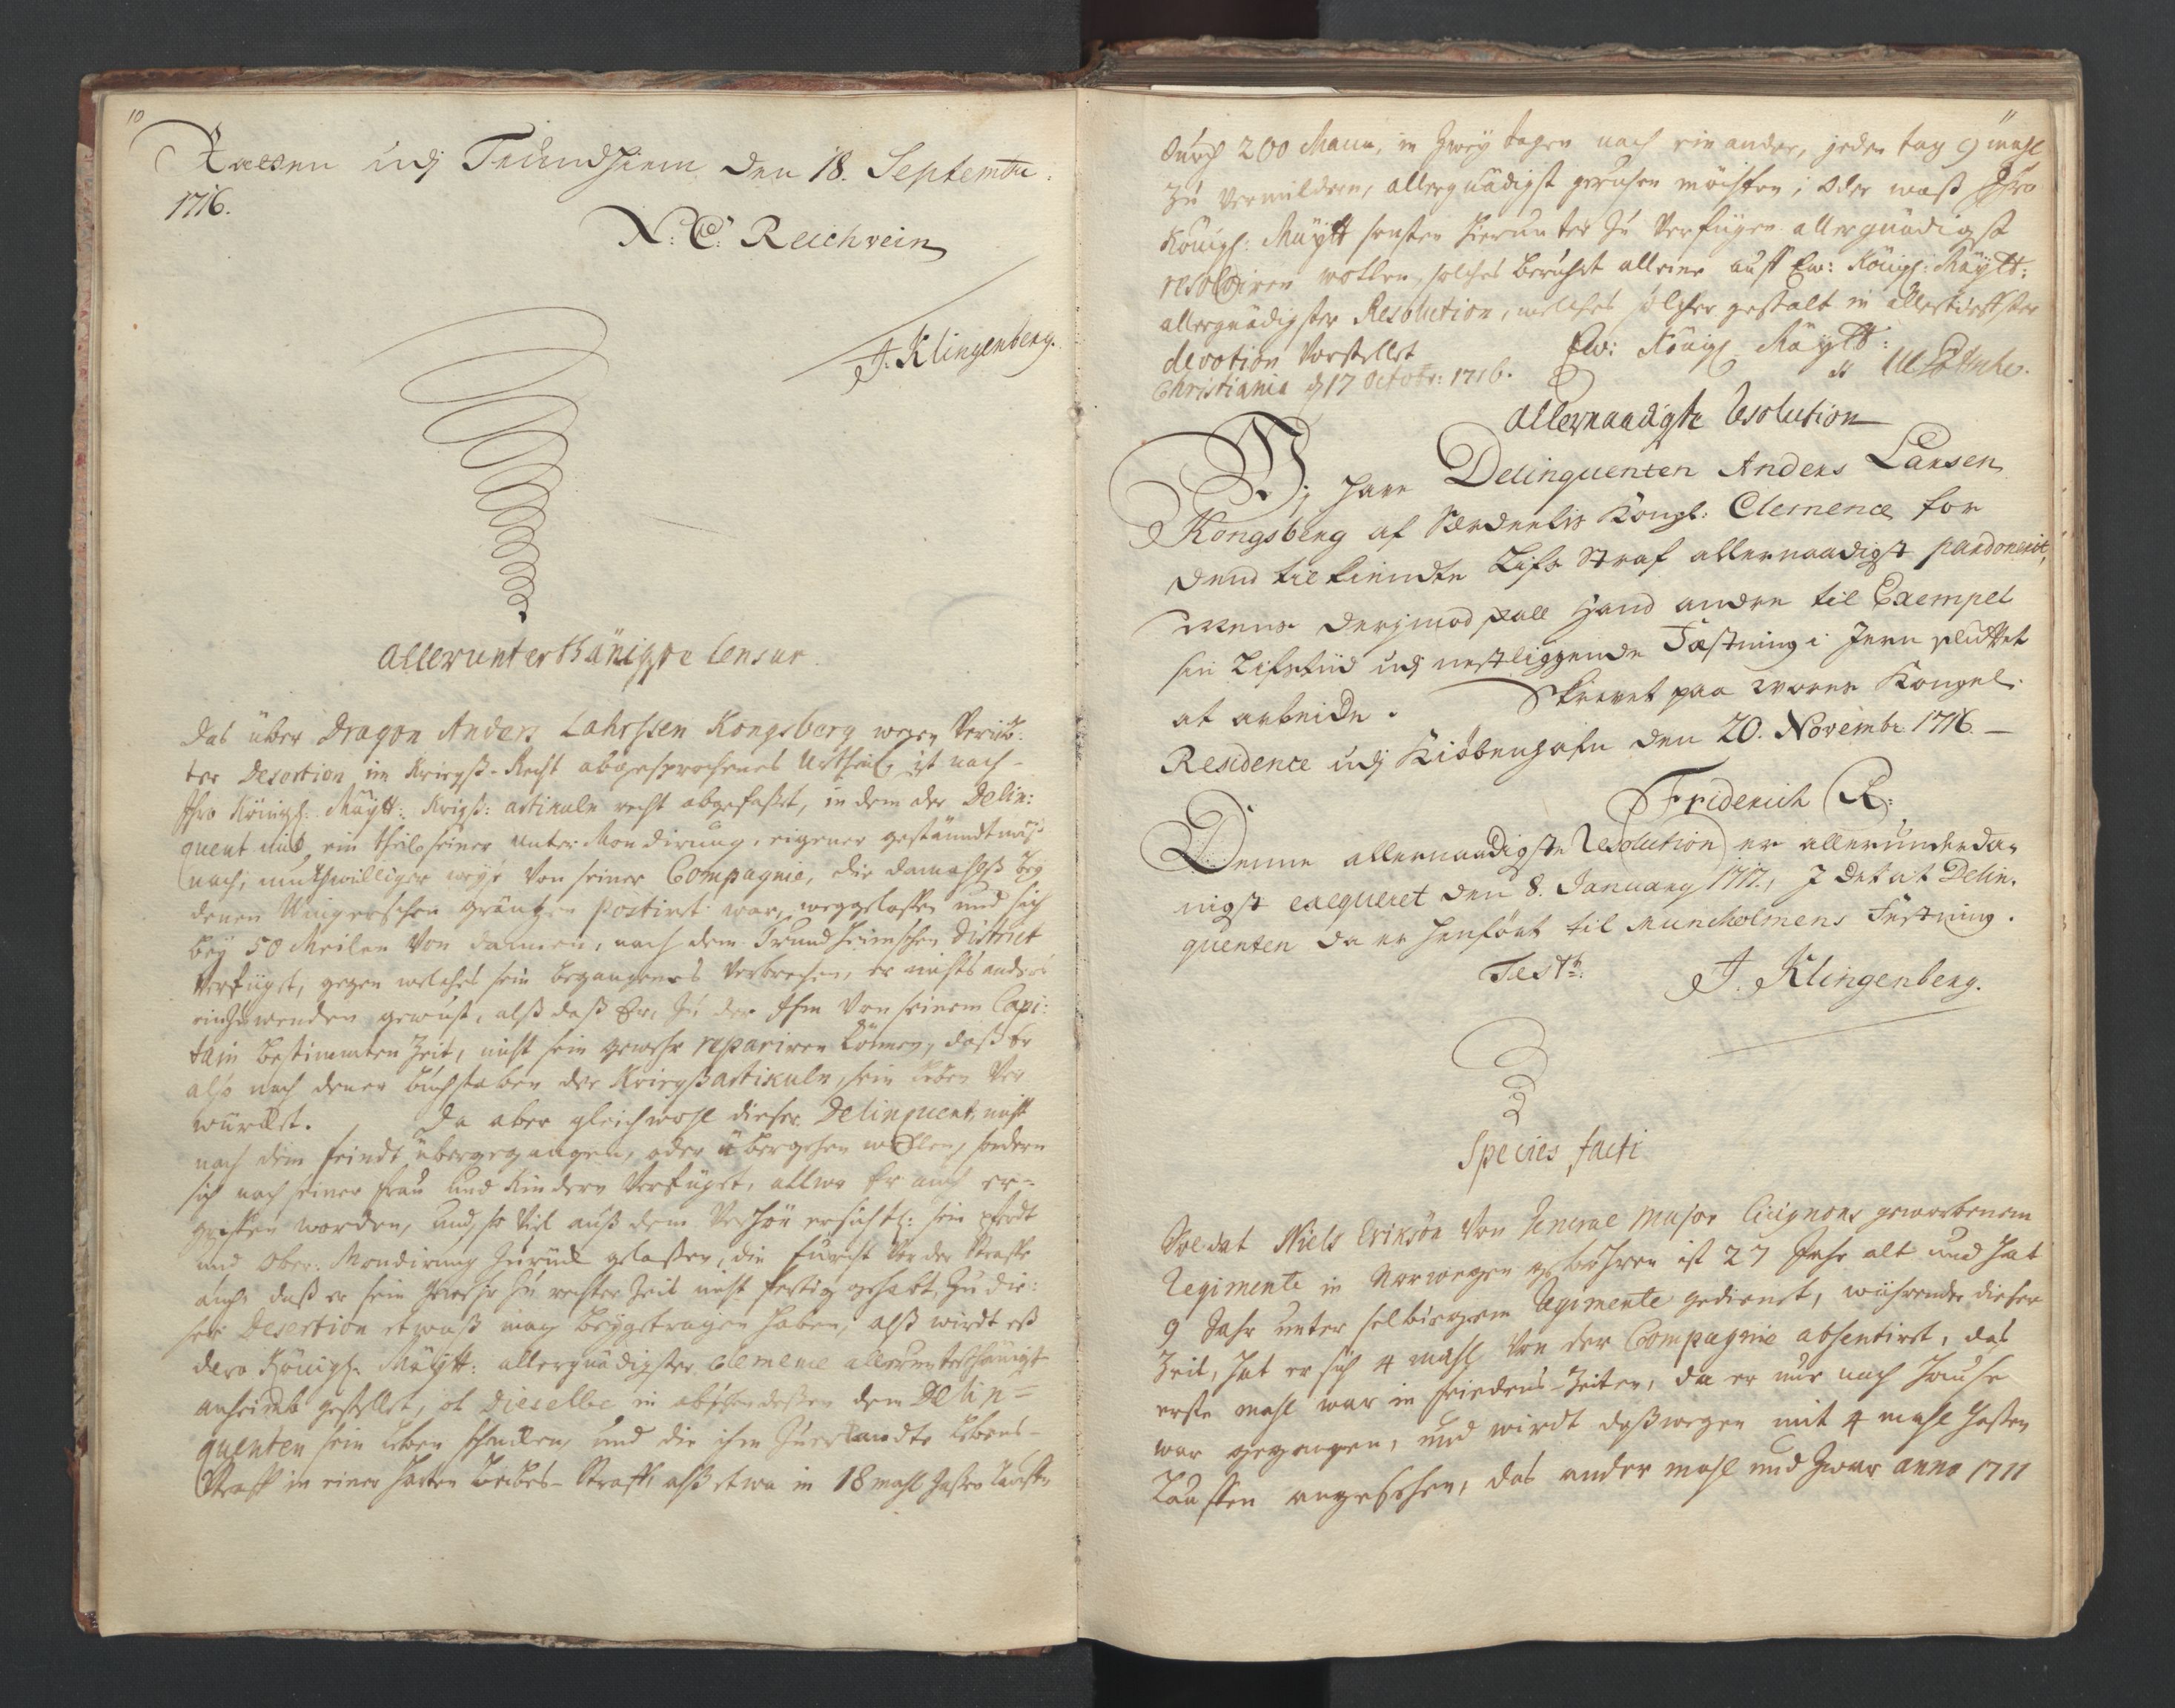 10
udj Trundhiem den 18. Septembr:
1716.
N: C: Reichvein
J. Klingenberg.
Allerunterthänigste Censur.
Das über Dragon Anders Lahrssen Kongsberg wegen Verüb:
ter Desertion im Kriegß-Recht abgesprochenes Urtheil, ist nach
Ihro Königl: Maÿtt: Krigß: articuln recht abgefasset, in dem der Delin:
quent mit ein theil seiner unter Mondirung, eigener geständtnüß
nach, muthwilliger weyse von seiner Compagnie, die damahlß beÿ
denen Wingerschen gräntzen postiret war, weggelaffen und sich
beÿ 50 Meilen von dannen, nach dem Trundheimschen District
verfüget, gegen welches sein begangenes verbrechen, er nichts anders
einzuwenden gewust, alß daß Er, zu der Ihm von seinem Capi:
tain bestimmten Zeit, nicht sein gewehr repariren können, daß Er
also nach denen buchstaben der Kriegßarticuln, sein leben ver
würcket. Da aber gleichwohl dieser Delinquent nicht
nach dem feindt übergegangen, oder übergehen wollen, sondern
sich nach seiner frau und Kindern verfüget, allwo Er auch er-
griffen worden, und, so viel auß dem Verhör ersichtl: sein pferdt
und Ober: Mondirung zurück gelassen, die furcht vor der straffe
auch, daß er sein gewehr zu rechter Zeit nicht fertig gehabt, zu die:
ser Desertion etwaß mag beygetragen haben, alß wirdt eß
dero Königl: Maÿtt: allergnädigster Clemence allerunterthänigst
anheimb gestellet, ob Dieselbe in absehen deßen dem Delin-
quenten sein leben schencken, und die ihm zuerkandte lebens-
Straff in einer harten Leibes-Straff, alß etwa in 18 mahl gaßen lauffen
11
durch 200 Mann, in zweÿ tagen nach ein ander, jeden tag 9 mahl
zu vermildern, allergnädigst geruhen möchten; oder waß Ihro
Königl: Maÿtt sonsten hierunter zu verfügen allergnädigst
resolviren wollen, solches beruhet alleine auff Ew: Königl: Maÿtt:
allergnädigster Resolution, welches solcher gestalt in allertieffster
devotion vorstellet Ew: Königl Maÿtt:
Christiania d 17 Octobr: 1716.
Allernaadigste Resolution
Vj have Delinquenten Anders Larsen
Kongsberg af Særdeelis Kongl: Clemence for
dend tilkiendte Lifs Straf allernaadigst pardoneret,
mens derimod skall hand andre til Exempel
sin Lifstiid udj nestliggende Fæstning i Jern sluttet
at arbeide. Skrevet paa vores Kongel:
Residence udj Kiöbenhafn den 20. Novembr. 1716.
Friderich R:
Denne allernaadigste Resolution er allerunderda-
nigst exequeret den 8. January 1717, I det at Delin-
quenten da er henfört til Muncholmens Festning.
Test: J. Klingenberg.
Species facti
Soldat Niels Eriksön von General Major Cicignons geworbenem
Regimente in Norwegen gebohren ist 27 Jahr alt und hat
9 Jahr unter selbigem Regimente gedienet, während dieser
Zeit, hat er sich 4 mahl von der Compagnie absentiret, das
erste mahl war in friedens-Zeiten, da er nur nach Hause
war gegangen, und wirdt deßwegen mit 4 mahl gaßen
Lauffen angesehen, das ander mahl und zwar anno 1711